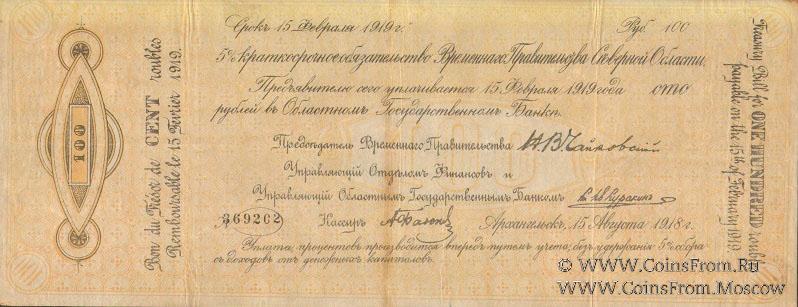 Срокъ 15 Февраля 1919 г. Руб. 100
5% краткосрочное обязательство Временнаго Правительства Сѣверной Области.
Предъявителю сего уплачивается 15 Февраля 1919 года сто
рублей въ Областномъ Государственномъ Банкѣ.
Предсѣдатель Временнаго Правительства Н.В. Чайковскій
Управляющій Отдѣломъ Финансовъ и
Управляющій Областнымъ Государственнымъ Банкомъ
369262 Кассиръ Архангельскъ, 15 Августа 1918 г.
Уплата процентовъ производится впередъ путемъ учета, безъ удержанія 5% сбора
съ доходовъ отъ денежныхъ капиталовъ.
100
Bon du Trésor de CENT roubles
Remboursable le 15 Février 1919.
Treasury Bill for ONE HUNDRED roubles
payable on the 15th of February 1919.
© WWW.CoinsFrom.Ru
© WWW.CoinsFrom.Moscow